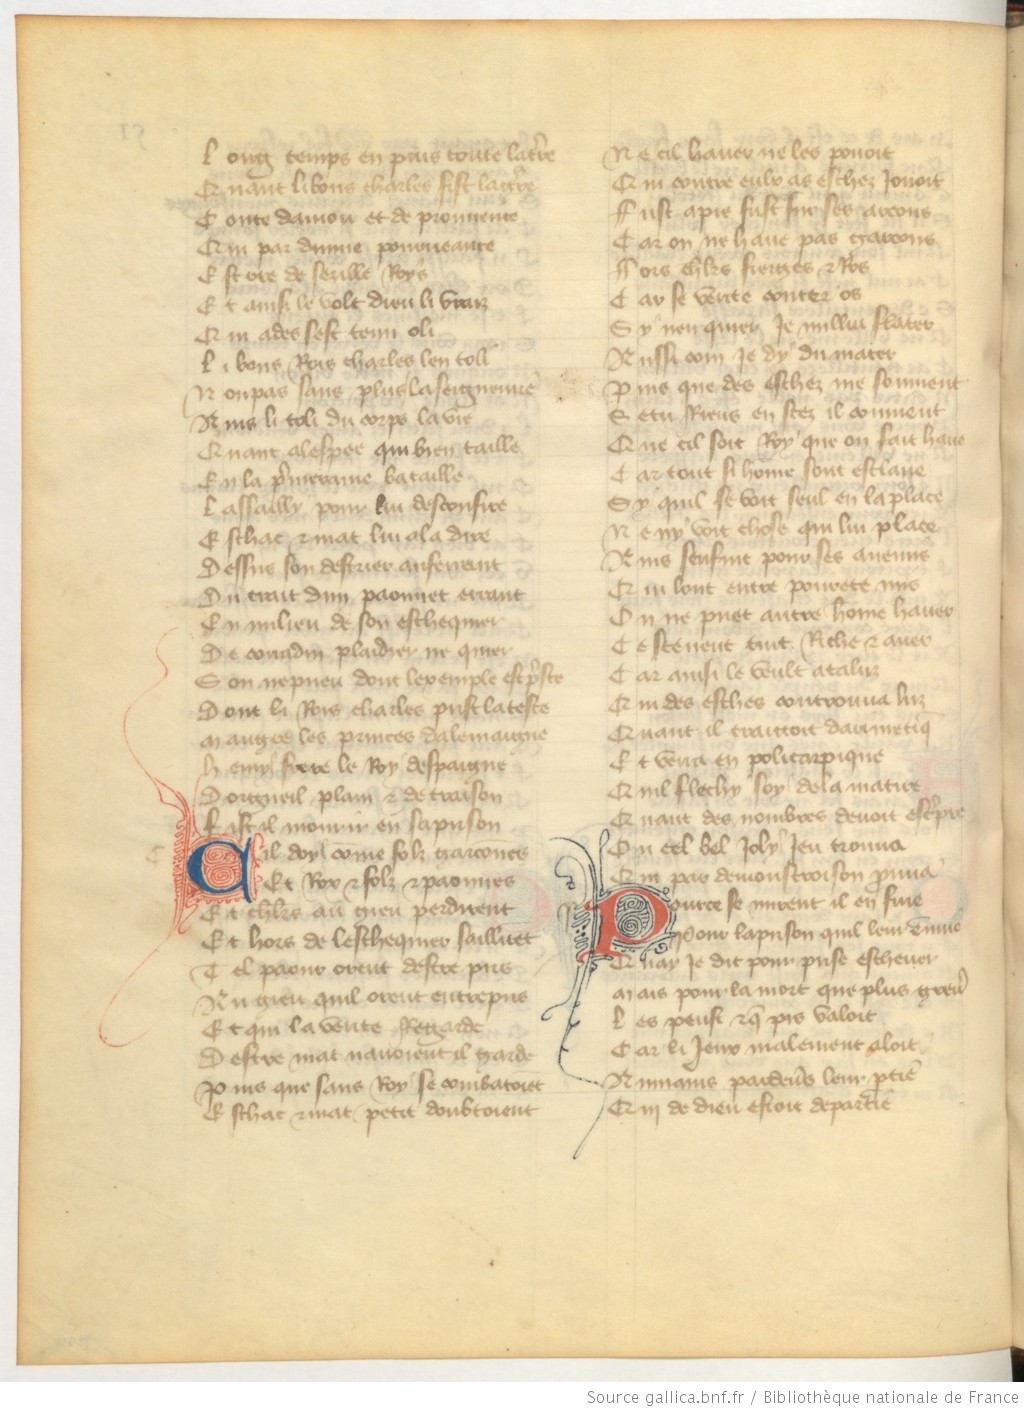 Long temps en pais toute la tr̄re
Quant li bons charles fist la gr̄re
Conte daniou et de prouuence
Qui par diuine pourueance
Est ore de sezille Roys
Et ainsi le volt dieu li vraiz
Qui ades sest tenu o li
Li bons Rois charles len toli
Non pas sans plus la seigneurie
Ains li toli du corps la vie
Quant a lespee qui bien taille
En la p̄meraine bataille
Lassailly pour lui desconfire
Eschac & mat lui ala dire
Dessus son destrier auferrant
Du trait dun paonnet errant
En milieu de son eschequier
De couradin plaidier ne quier
Son nepueu dont lexemple est p̄ste
Dont li Rois charles prist la teste
Maugre les princes dalemaigne
Henry frere le Roy despaigne
Dorgueil plain & de traison
Fist il mourir en sa prison
Cil doy come folz garconnes
Et Rox & folz & paonnes
Et chl̄rs au gieu perdirent
Et hors de leschequier saillirēt
Tel paour orent destre pris
Au gieu quil orent entrepris
Et qui la verite Regarde
Destre mat nauoient il garde
Puis que sans Roy se combatoiēt
Eschac & mat petit doubtoient
Ne cil hauer ne les pouoit
Qui contre eulx as eschez Jouoit
Fust a pie fust sur ses arcons
Car on ne haue pas garcons
Folz chl̄rs fierges & Ros
Car se verite conter os
Sy nen quier Je nullui flater
Aussi com Je dy du mater
Puis que des eschez me souuient
Se tu Riens en scez il conuient
Que cil soit Roy que on fait haue
Car tout si home sont esclaue
Sy quil se voit seul en la place
Ne ny voit chose qui lui place
Ains senfuit pour ses anemis
Qui lont entre pourete mis
On ne puet autre home hauer
Ce sceuent tuit Riche & auer
Car ainsi le veult atalus
Qui des esches controuua luz
Quant il traittoit darimetiq̄
Et verra en policarpique
Quil flechy soy de la matire
Quant des nombres deuoit esc̄pre
Ou cel bel Joly Jeu trouua
Qui par demonstroison prouua
Pource se mirent il en fuie
Pour la prison quil leur ēnuie
Quay Je dit pour prise escheuer
Mais pour la mort que plus greu̾
Les peust & q̄ pis valoit
Car li Jeux malement aloit
Aumains par deu̾s leur p̄tie
Qui de dieu estoit departie